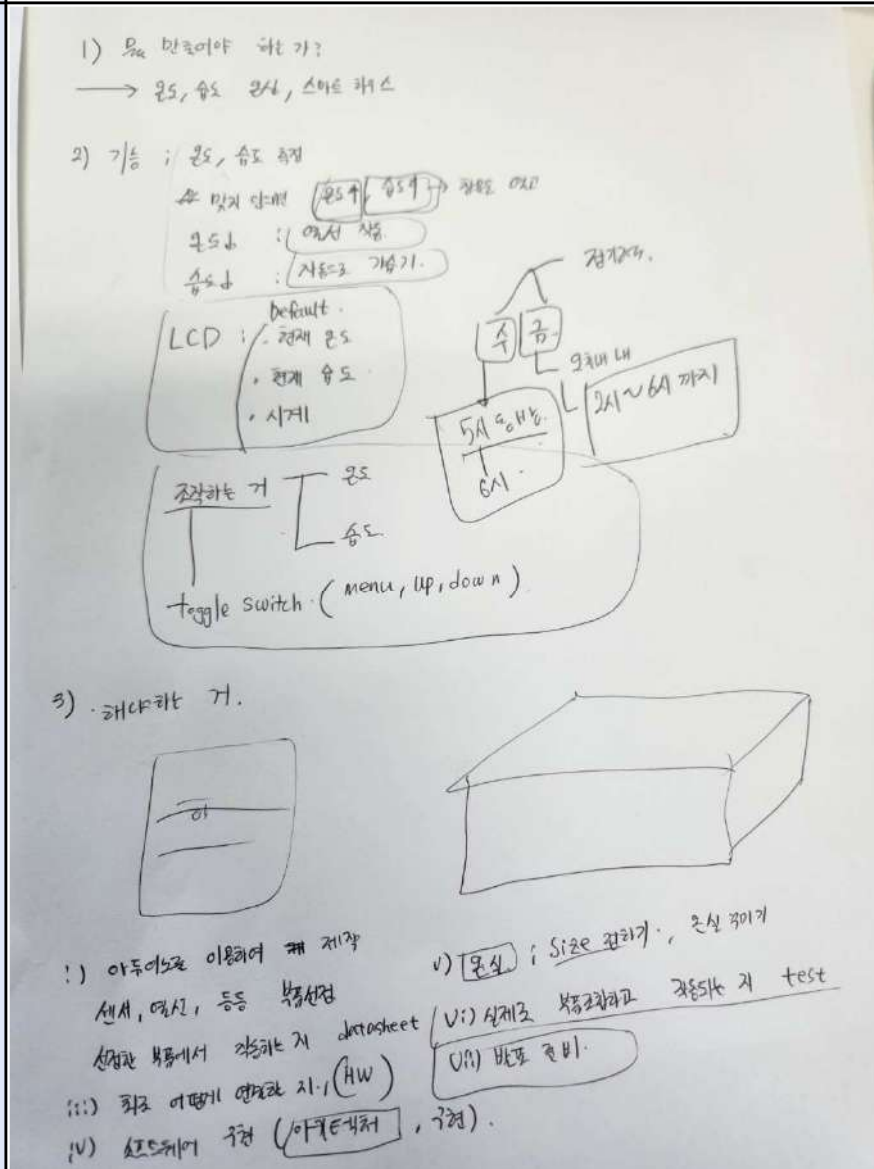 1) 뭘 만들어야 하는가?
→ 온도, 습도 온실, 스마트 하우스
2) 기능 ; 온도, 습도 측정
맞지 않으면 온도↑, 습도↑ → 창문 열고
온도↓ : 열선 작동.
습도↓ : 자동으로 가습기.
LCD : Default.
· 현재 온도
· 현재 습도
· 시계
정기적으로.
수 금
오후내내
2시~6시 까지
5시 동방.
6시.
조작하는 거
온도
습도.
toggle switch. (menu, up, down)
3) · 해야하는 거.
i) 아두이노를 이용하여 제작
센서, 열선, 등등 부품선정
선정한 부품에서 작동하는 지 datasheet
iii) 회로 어떻게 연결할 지., (HW)
iv) 소프트웨어 구현 (아키텍처, 구현).
v) 온실 ; Size 정하기., 온실 꾸미기
Vi) 실제로 부품조합하고 작동되는 지 test
Vii) 발표 준비.